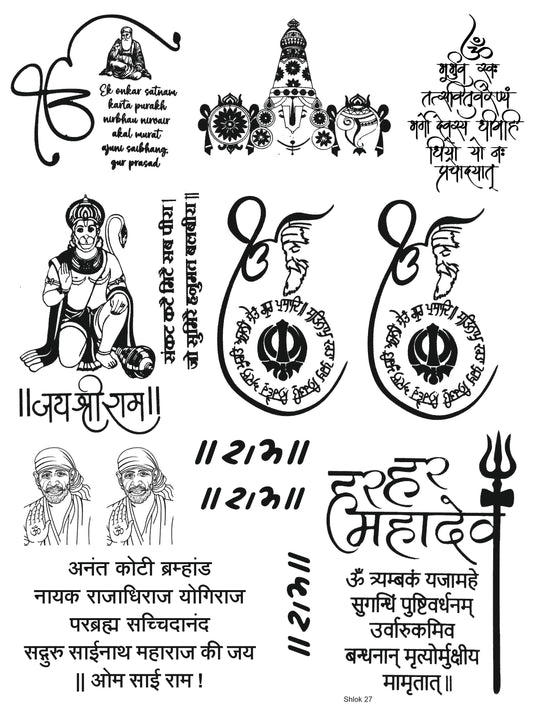 ੴ
Ek onkar satnam
karta purakh
nirbhau nirvair
akal murat
ajuni saibhang,
gur prasad
ॐ
भूर्भुव स्वः
तत्सवितुर्वरेण्यं
भर्गो देवस्य धीमहि
धियो यो नः
प्रचोदयात्
संकट कटै मिटै सब पीरा।
जो सुमिरै हनुमत बलबीरा॥
||जय श्री राम||
ੴ
ਸਤਿਨਾਮੁ ਕਰਤਾ ਪੁਰਖੁ
ਗੁਰ ਪ੍ਰਸਾਦਿ॥
ੴ
ਸਤਿਨਾਮੁ ਕਰਤਾ ਪੁਰਖੁ
ਗੁਰ ਪ੍ਰਸਾਦਿ॥
ॐ
ॐ
|| રામ ||
|| રામ ||
|| રામ ||
अनंत कोटी ब्रम्हांड
नायक राजाधिराज योगिराज
परब्रह्म सच्चिदानंद
सद्गुरु साईनाथ महाराज की जय
|| ओम साई राम !
हर हर
महादेव
ॐ त्र्यम्बकं यजामहे
सुगन्धिं पुष्टिवर्धनम्
उर्वारुकमिव
बन्धनान् मृत्योर्मुक्षीय
मामृतात् ॥
Shlok 27